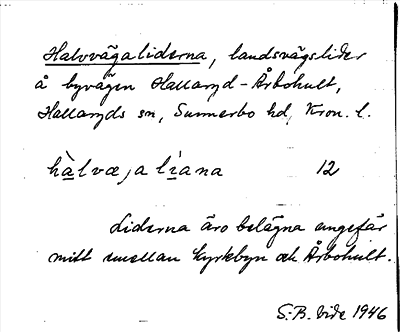 Halvvägaliderna, landsvägslider
å byvägen Hallaryd - Årbohult,
Hallaryds sn, Sunnerbo hd, Kron. l.
hàlvæja líana 12
Liderna äro belägna ungefär
mitt emellan kyrkbyn och Årbohult.
S.-B. Vide 1946